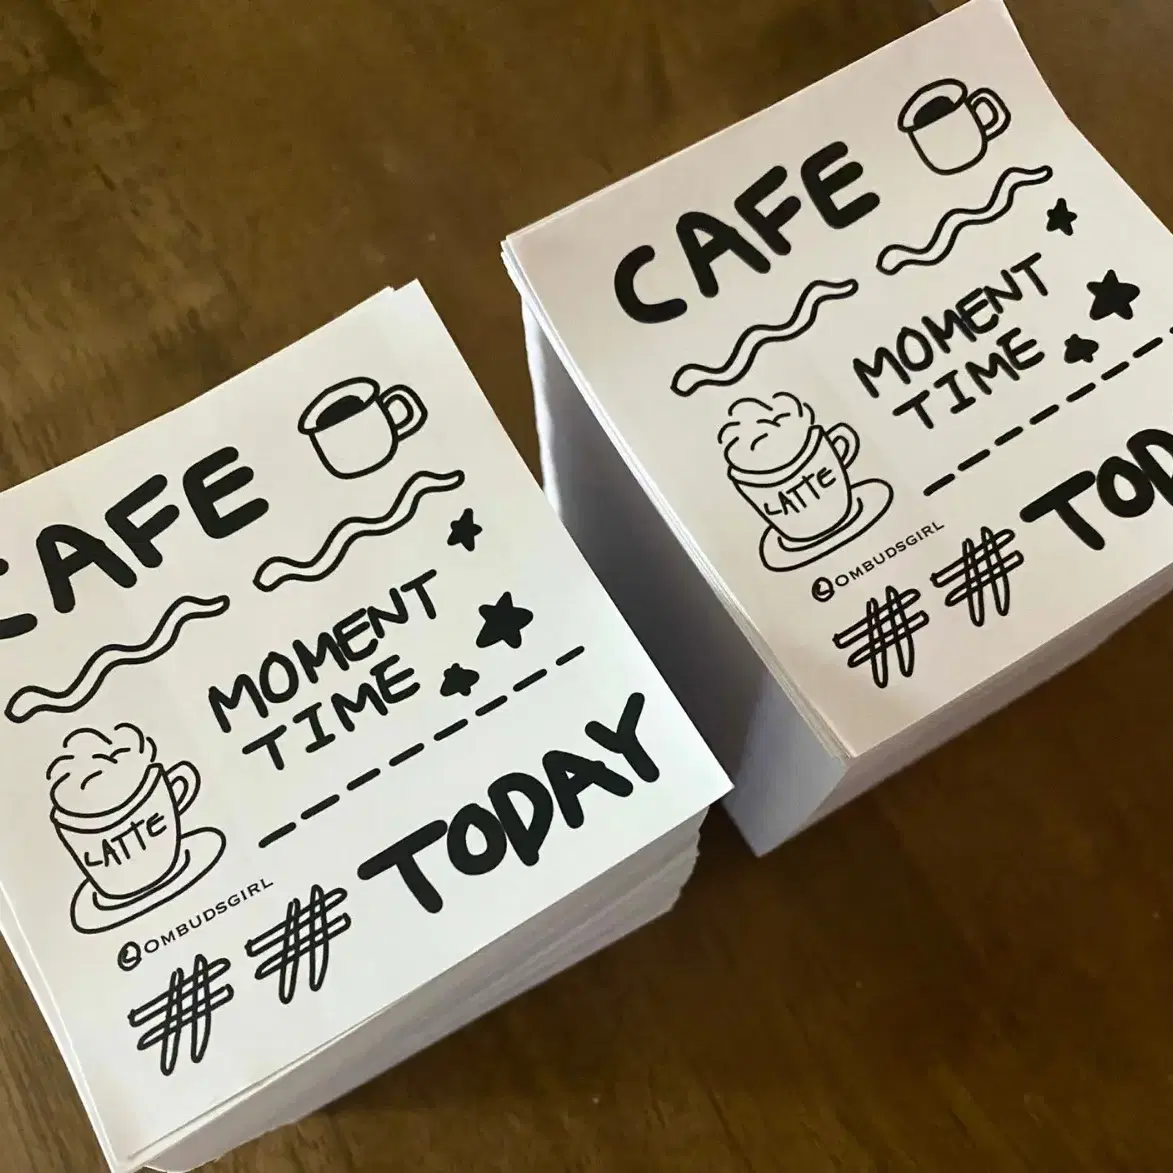 CAFE
MOMENT
TIME
LATTE
@OMBUDSGIRL
## TODAY
CAFE
MOMENT
TIME
LATTE
@OMBUDSGIRL
## TOD